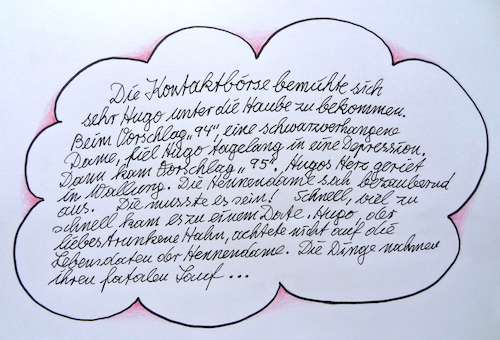 Die Kontaktbörse bemühte sich
sehr Hugo unter die Haube zu bekommen.
Beim Vorschlag „94", eine schwarzverhangene
Dame, fiel Hugo tagelang in eine Depression.
Dann kam Vorschlag „95". Hugos Herz geriet
in Wallung. Die Hennendame sah bezaubernd
aus. Die musste es sein! Schnell, viel zu
schnell kam es zu einem Date. Hugo, der
liebestrunkene Hahn, achtete nicht auf die
Lebensdaten der Hennendame. Die Dinge nahmen
ihren fatalen Lauf ...